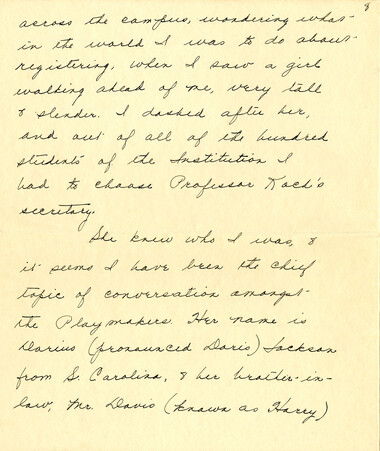 8
across the campus, wondering what
in the world I was to do about
registering, when I saw a girl
walking ahead of me, very tall
& slender. I dashed after her,
and out of all of the hundred
students of the Institution I
had to choose Professor Koch's
secretary.
She knew who I was, &
it seems I have been the chief
topic of conversation amongst
the Playmakers. Her name is
Darius (pronounced Doris) Jackson
from S. Carolina, & her brother-in-
law, Mr. Davis (known as Harry)